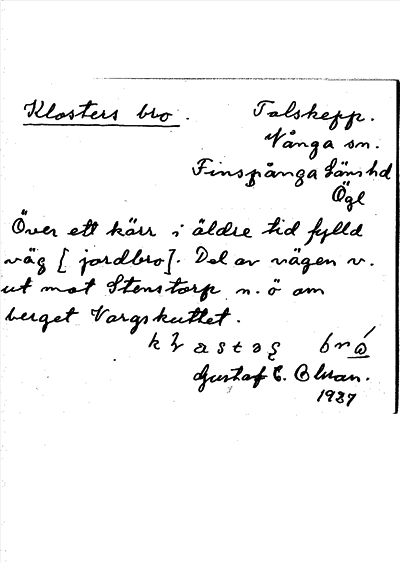 Klosters bro.
Talskepp.
Vånga sn.
Finspånga läns hd
Ögl
Över ett kärr i äldre tid fylld
väg [jordbro]. Del av vägen v.
ut mot Stenstorp n.ö om
berget Vargskuttet.
Gustaf E.
1937